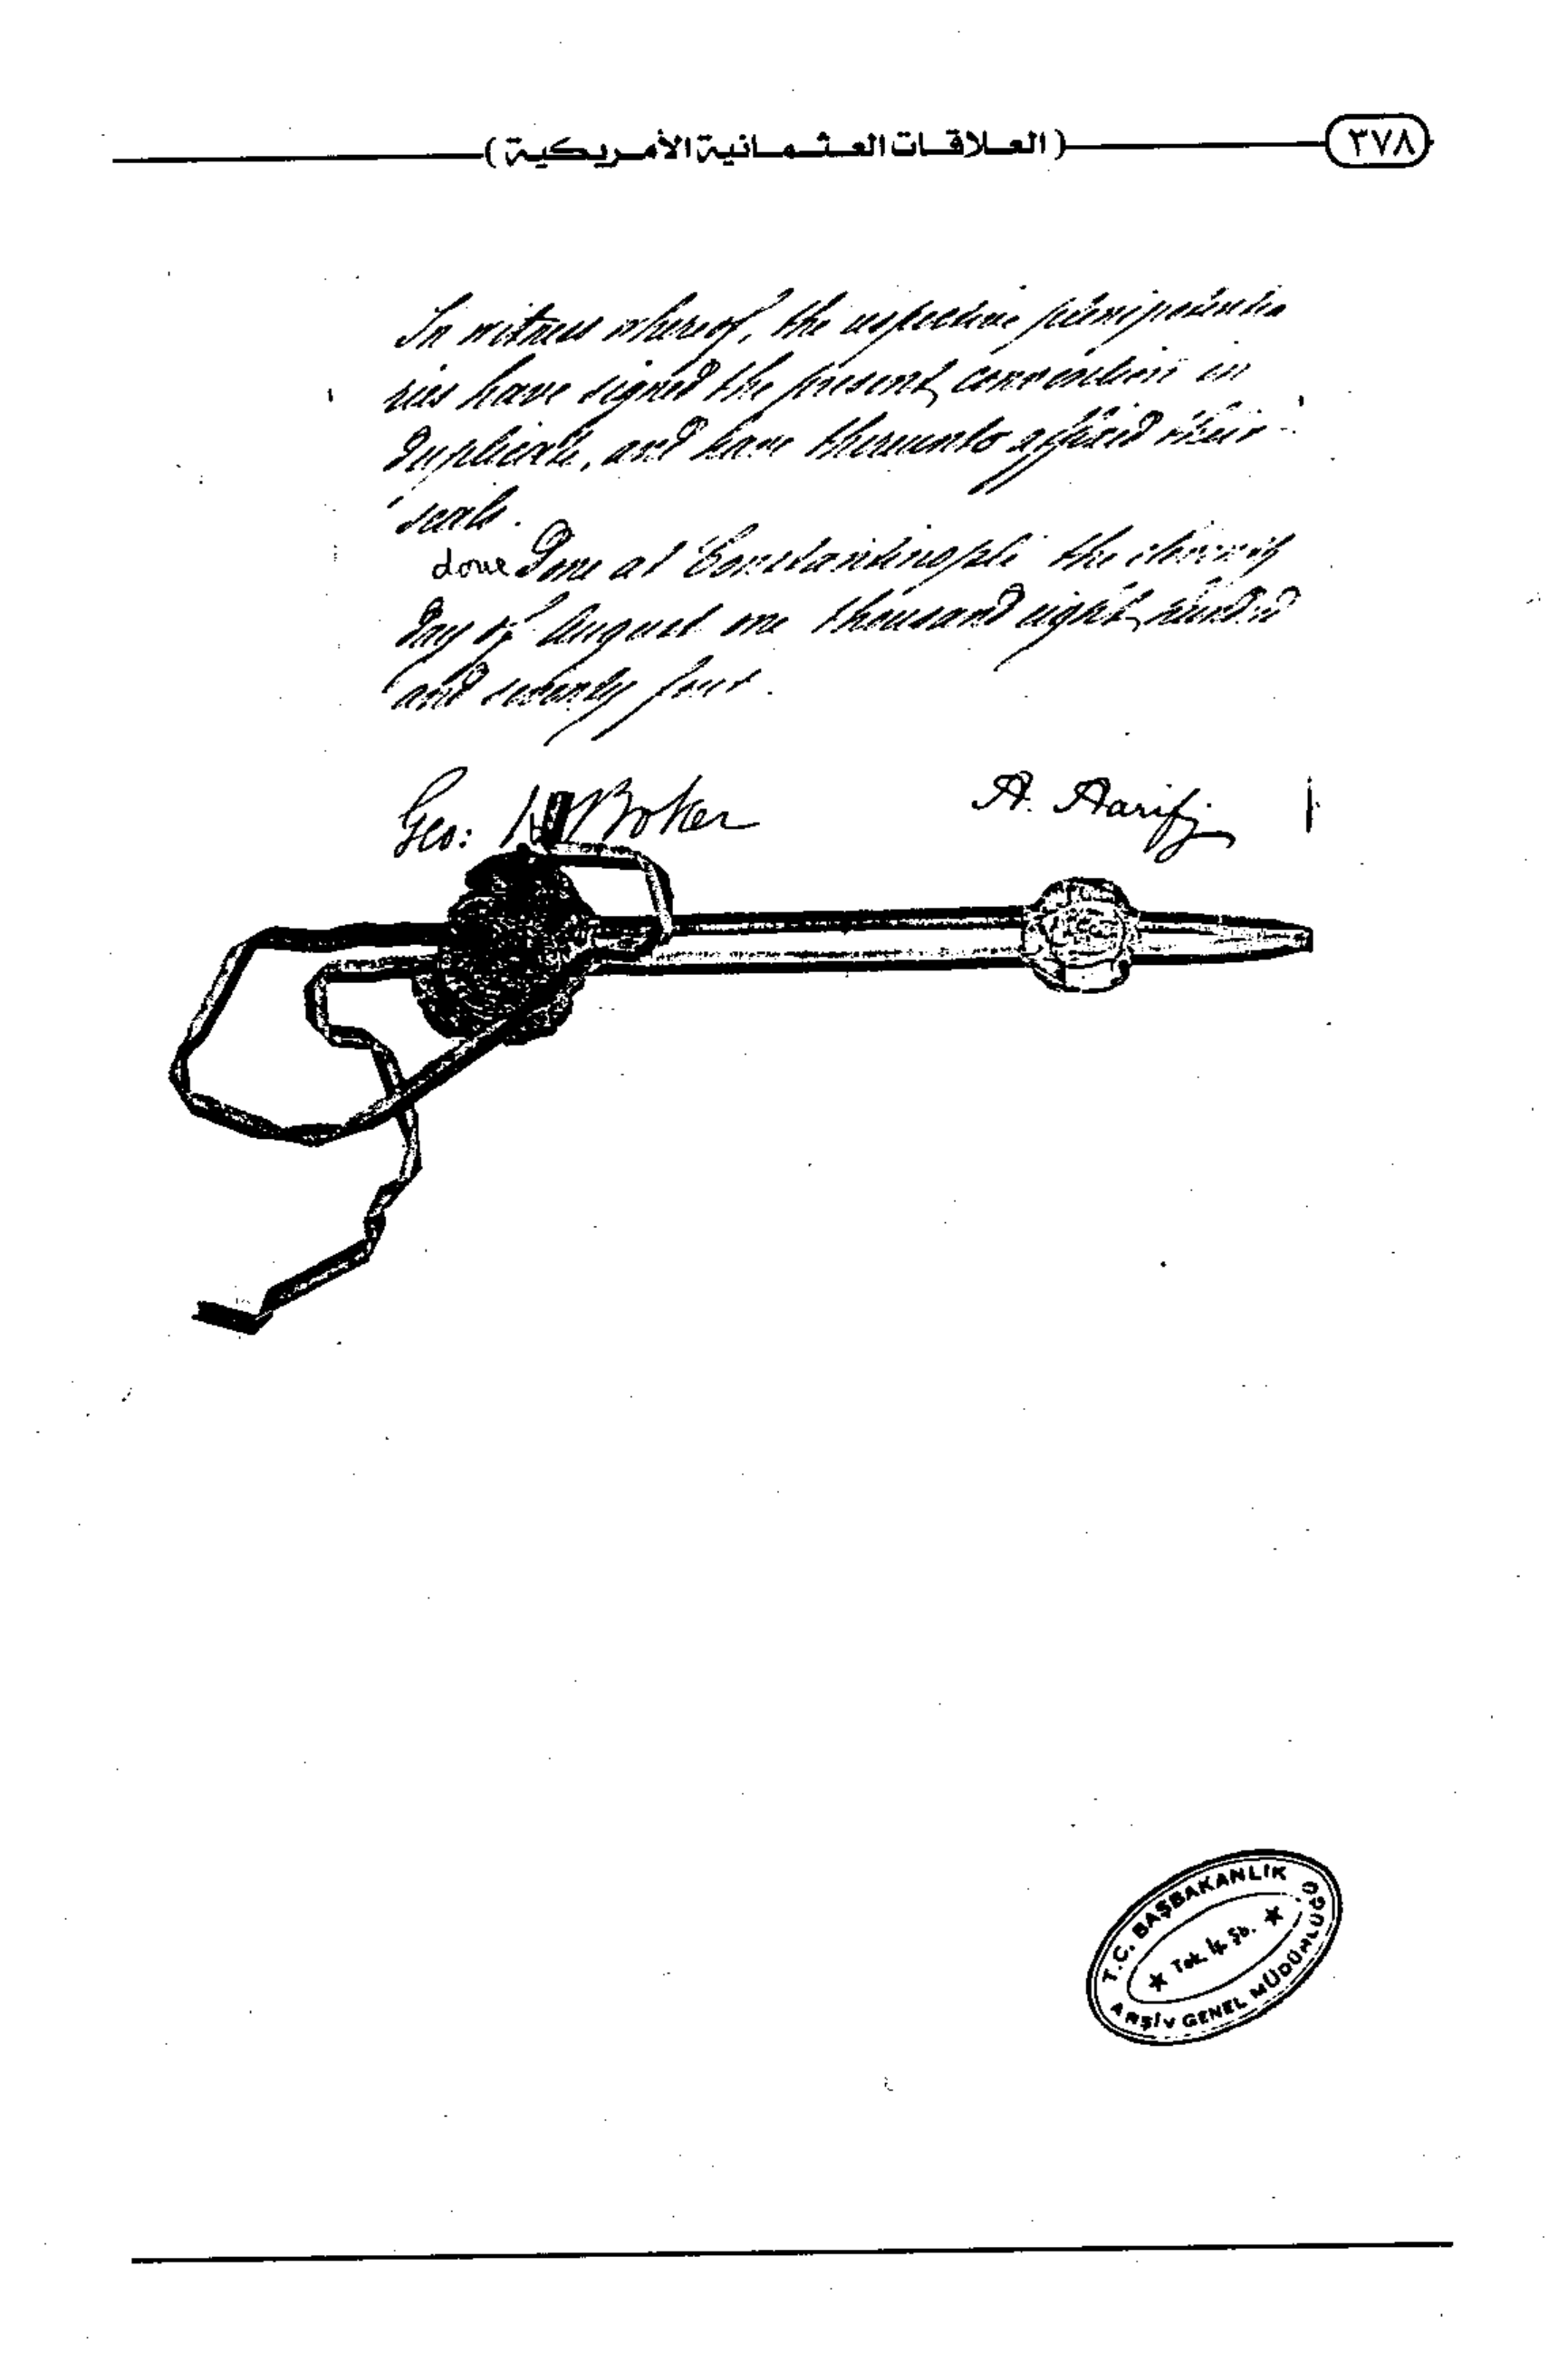 (العلاقات العثمانية الأمريكية)
٣٧٨
In witness whereof, the respective plenipotentia
ries have signed the present convention in
duplicate, and have thereunto affixed their
seals.
done Done at Constantinople the eleventh
day of August one thousand eight hundred
and seventy four.
Geo: H Boker
A. Aarifi
T.C. BAŞBAKANLIK
★ Tek. İş. Şb. ★
ARŞİV GENEL MÜDÜRLÜĞÜ